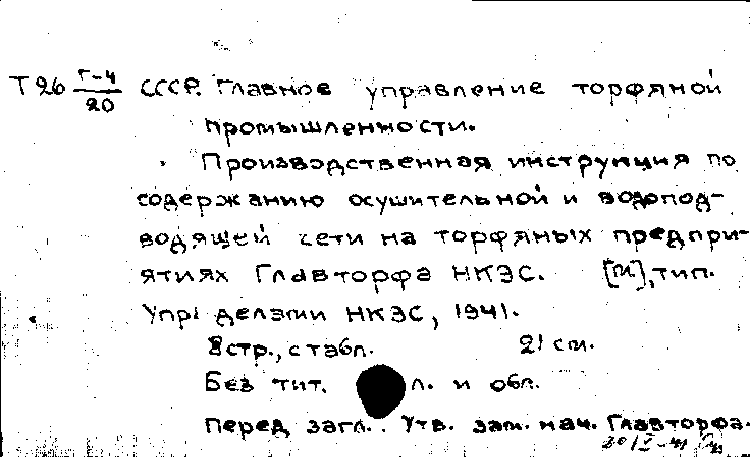 Т26 Г-4/20 СССР. Главное управление торфяной
промышленности.
Производственная инструкция по
содержанию осушительной и водопод-
водящей сети на торфяных предпри-
ятиях Главторфа НКЭС. [М], тип.
Упр. делами НКЭС, 1941.
8 стр., с табл. 21 см.
Без тит. л. и обл.
Перед загл.: Утв. зам. нач. Главторфа.
20/I-41